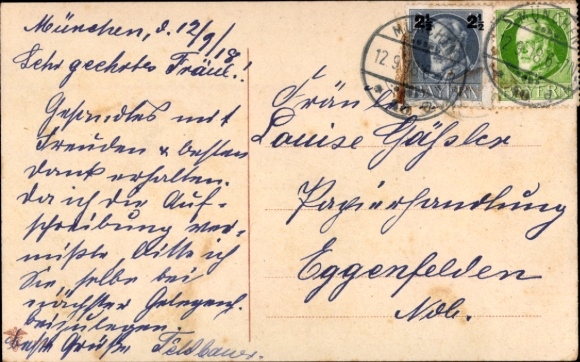 München, d. 12/9/18.
Sehr geehrtes Fräul.!
Gesandtes mit
Freuden & besten
Dank erhalten.
Da ich die Auf-
schreibung ver-
mißte, bitte ich
Sie, selbe bei
nächster Gelegenh.
beizulegen.
Beste Grüße Feldbauer.
2½ 2½
BAYERN
BAYERN
MÜNCHEN
12.9.
Fräulein
Louise Gäßler
Papierhandlung
Eggenfelden
Ndb.